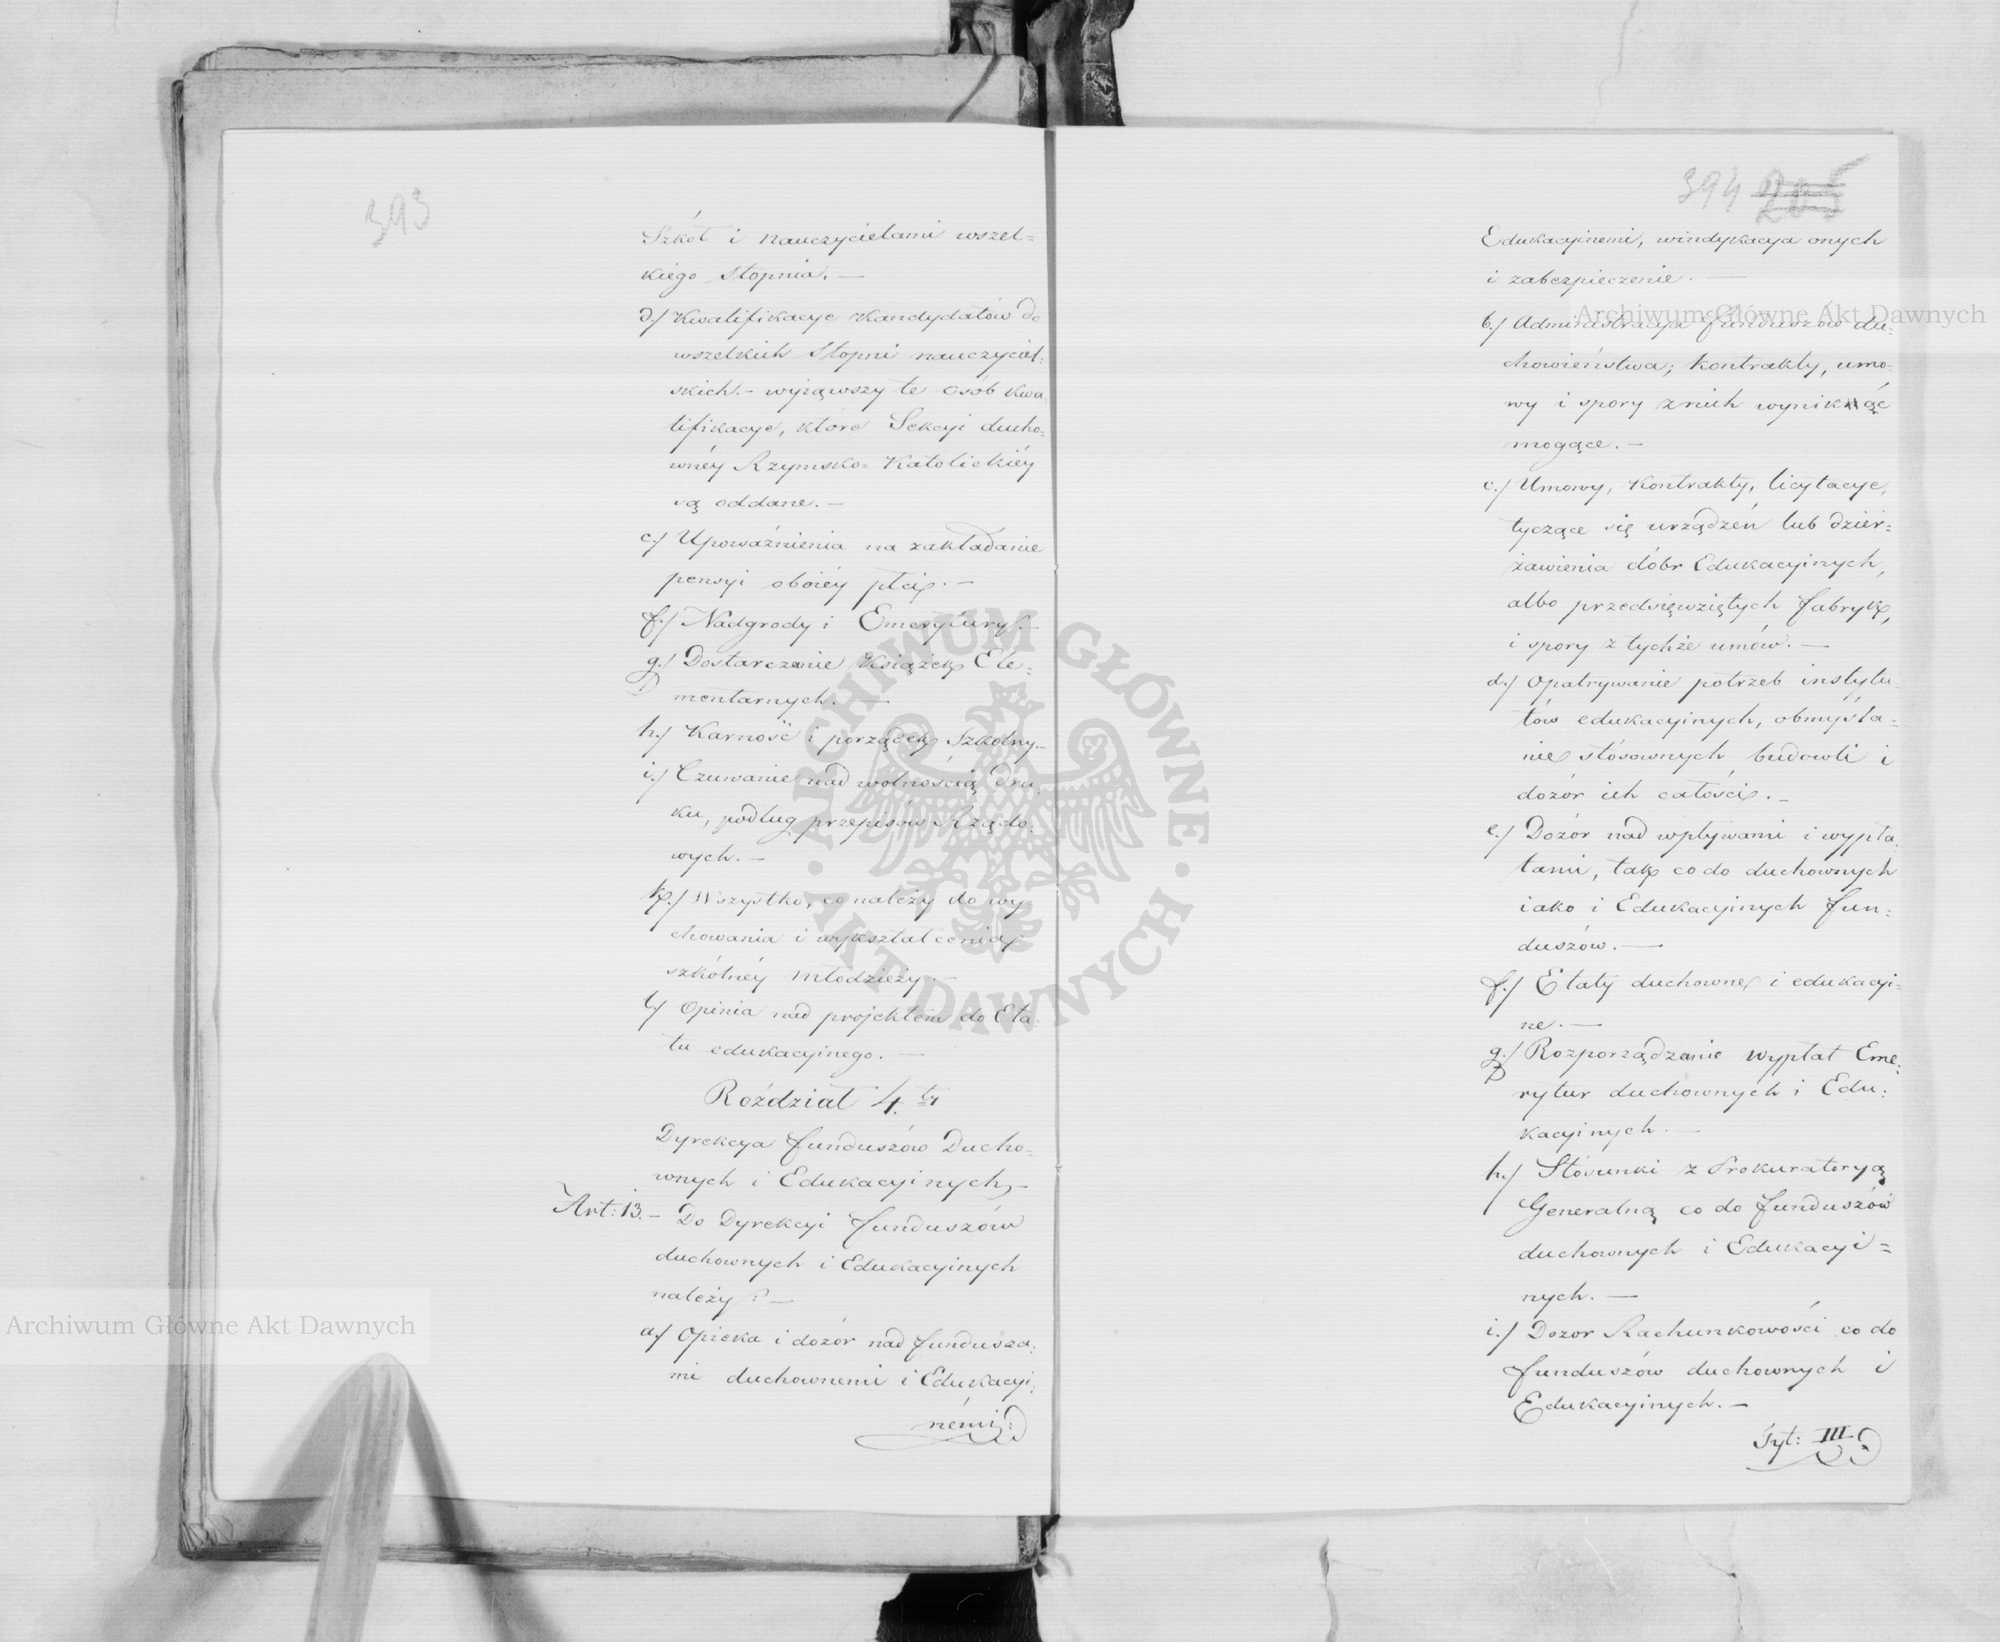 393
Szkół i nauczycielami wszel=
kiego stopnia. —
d./ Kwalifikacye Kandydatów do
wszelkich stopni nauczyciel=
skich. – wyiąwszy te osób kwa=
lifikacye, które Sekcyi ducho=
wnéy Rzymsko=Katolickiéy
są oddane. —
e./ Upoważnienia na zakładanie
pensyi oboiéy płci. —
f./ Nadgrody i Emerytury. –
g./ Dostarczanie Książek Ele=
mentarnych. —
h./ Karność i porządek Szkolny. –
i./ Czuwanie nad wolnością dru=
ku, podług przepisów Rządo=
wych. —
k./ Wszystko, co należy do wy=
chowania i wykształcenia
szkólnéy młodzieży. –
l/ Opinia nad projektem do Eta=
tu edukacyinego. —
Roździał 4.ty
Dyrekcya funduszów Ducho=
wnych i Edukacyinych –
Art: 13. – Do Dyrekcyi funduszów
duchownych i Edukacyinych
należy : —
a/ Opieka i dozór nad fundusza=
mi duchownemi i Edukacyi=
némi:
394 205
Edukacyinemi, windykacya onych
i zabezpieczenie. —
b./ Administracya funduszów du=
chowieństwa; kontrakty, umo=
wy i spory z nich wyniknąć
mogące. —
c./ Umowy, Kontrakty, licytacye,
tyczące się urządzeń lub dzier=
żawienia dóbr Edukacyinych,
albo przedsięwziętych fabryk,
i spory z tychże umów. —
d./ Opatrywanie potrzeb instytu=
tów edukacyinych, obmyśla=
nie stósownych budowli i
dozór ich całości. –
e./ Dozór nad wpływami i wypła=
tami, tak co do duchownych
iako i Edukacyinych fun=
duszów. —
f./ Etaty duchowne i edukacyi=
ne. —
g./ Rozporządzanie wypłat Eme=
rytur duchownych i Edu=
kacyinych. —
h./ Stósunki z Prokuratoryą
Generalną co do funduszów
duchownych i Edukacyi=
nych. —
i./ Dozor Rachunkowości co do
funduszów duchownych i
Edukacyinych. —
Tyt: III.
Archiwum Główne Akt Dawnych
Archiwum Główne Akt Dawnych
ARCHIWUM GŁÓWNE · AKT DAWNYCH ·